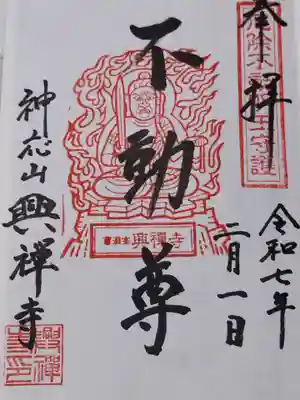 奉拝
令和七年
二月一日
不動尊
興禅寺
神応山興禅寺